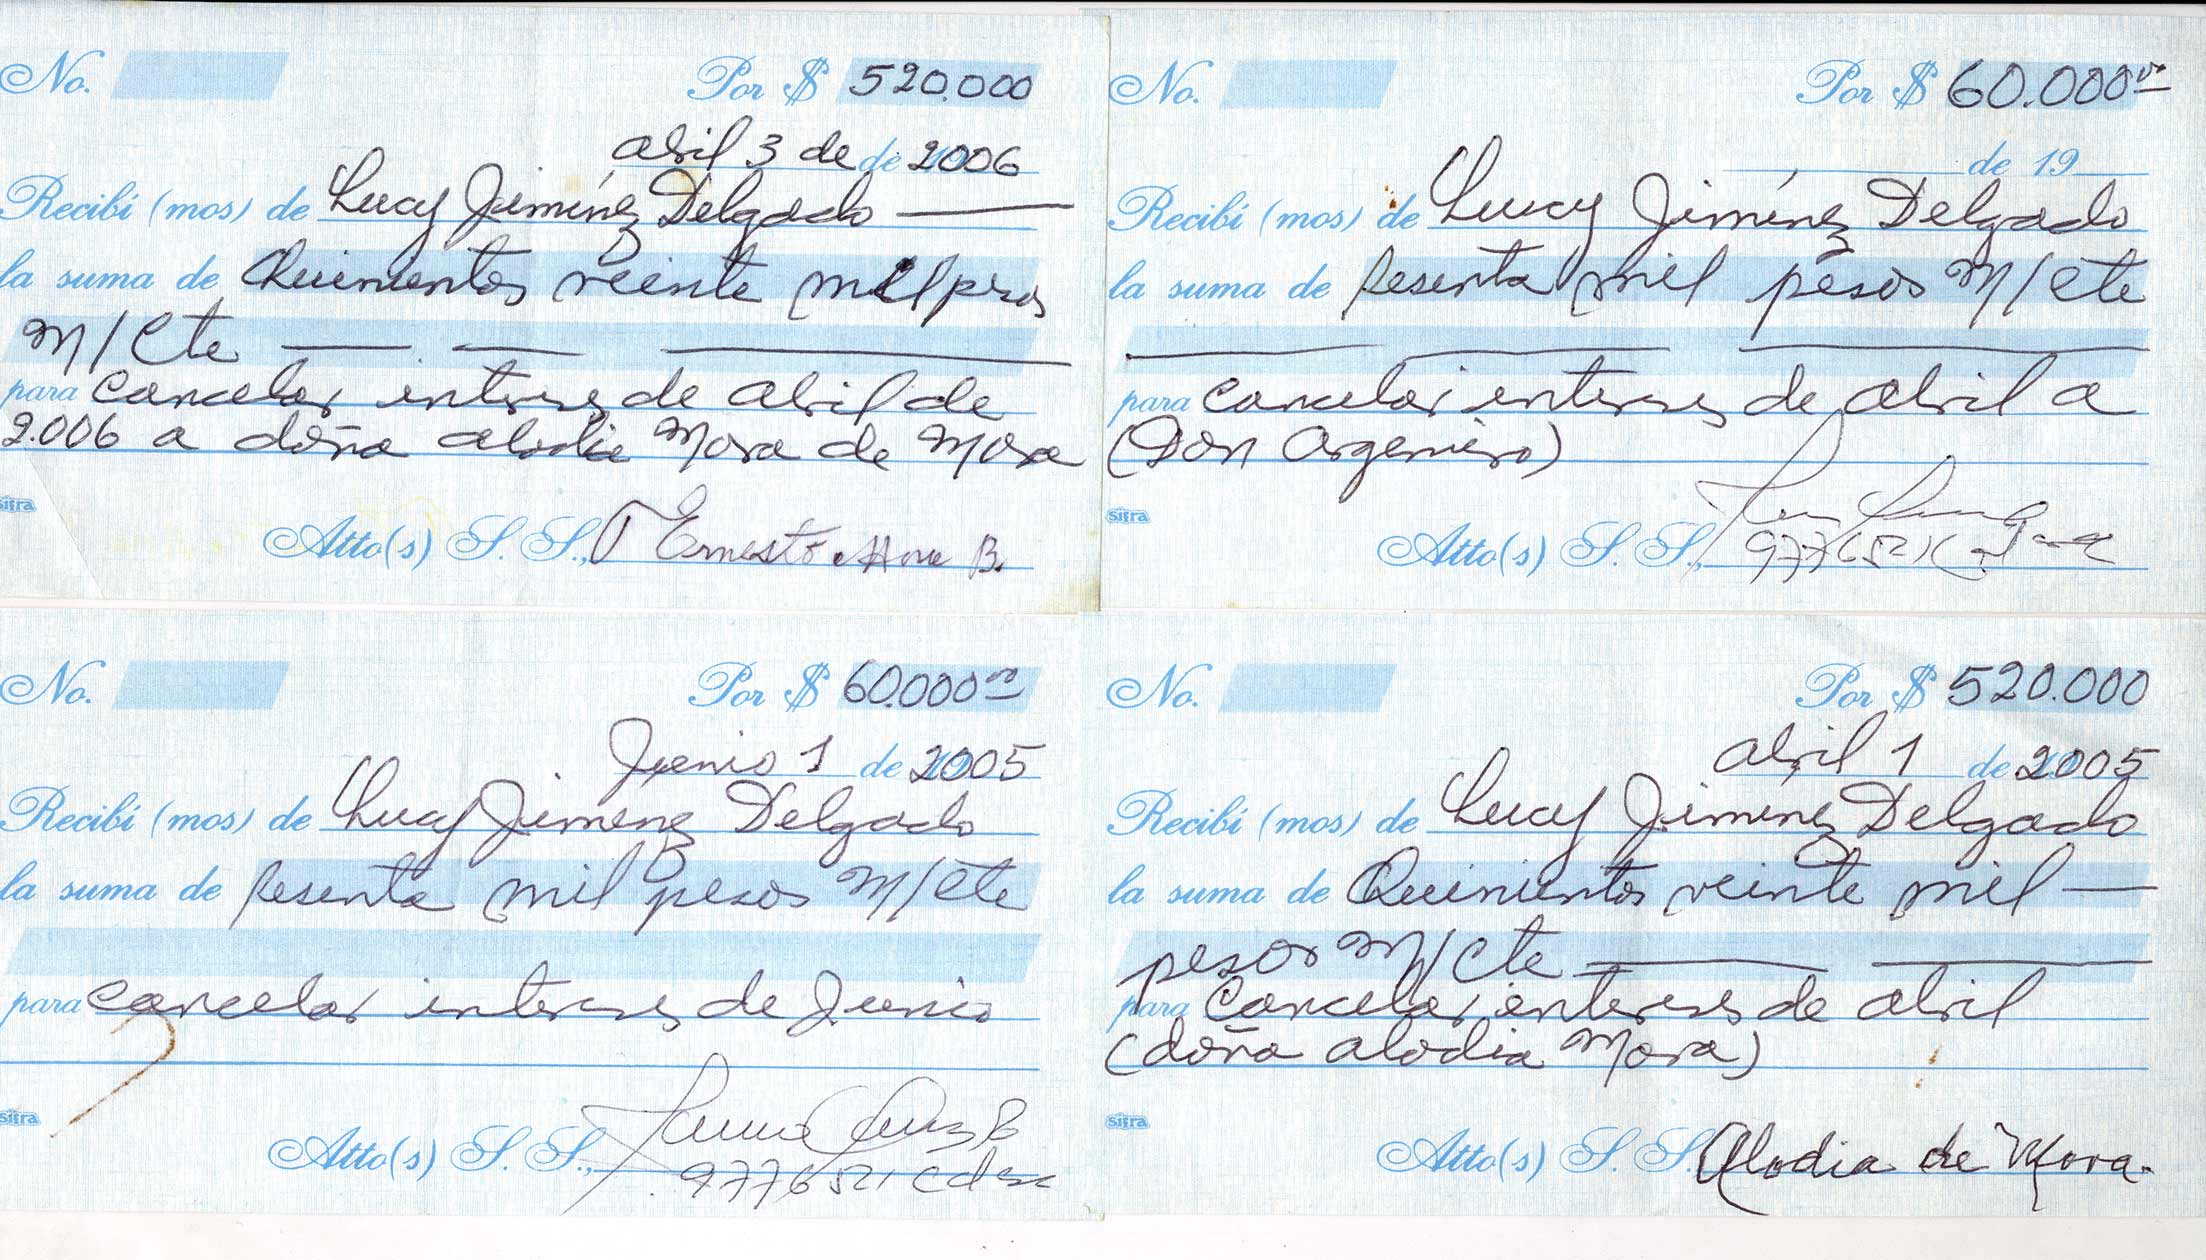 No. Por $ 520.000
abril 3 de de 2006
Recibí (mos) de Lucy Jiménez Delgado
la suma de Quinientos veinte mil pesos
M/Cte
para Cancelar intereses de abril de
2.006 a doña alodia Mora de Mora
Sifra
Atto(s) S. S., Ernesto Mora B.
No. Por $ 60.000ºº
de 19
Recibí (mos) de Lucy Jiménez Delgado
la suma de Sesenta mil pesos M/Cte
para Cancelar intereses de abril a
(Don Argemiro)
Sifra
Atto(s) S. S.,
No. Por $ 60.000ºº
Junio 1 de 2005
Recibí (mos) de Lucy Jiménez Delgado
la suma de Sesenta mil pesos M/Cte
para Cancelar intereses de Junio
Sifra
Atto(s) S. S.,
9776521
No. Por $ 520.000
abril 1 de 2005
Recibí (mos) de Lucy Jiménez Delgado
la suma de Quinientos veinte mil
pesos M/Cte
para Cancelar intereses de abril
(doña alodia Mora)
Sifra
Atto(s) S. S. Alodia de Mora.